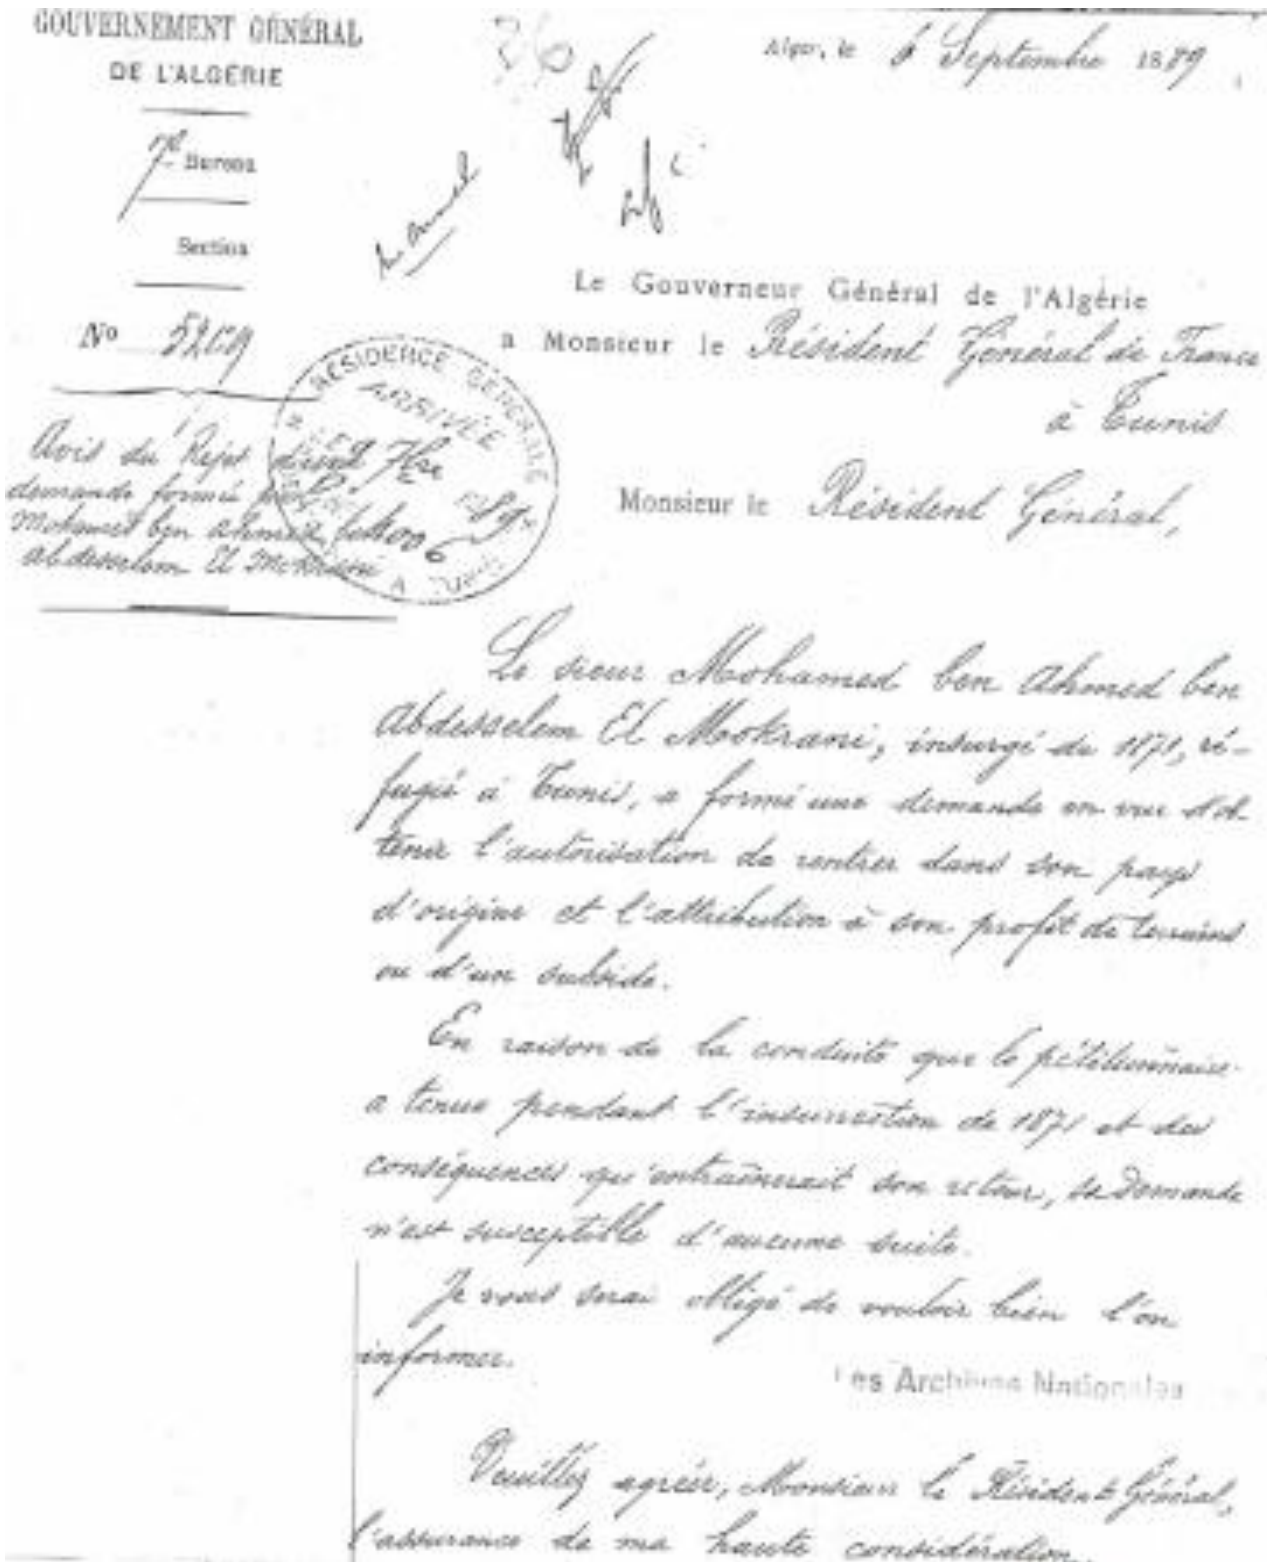 GOUVERNEMENT GÉNÉRAL
DE L'ALGÉRIE
Bureau
Section
No
Alger, le 6 Septembre 1889
Le Gouverneur Général de l'Algérie
a Monsieur le Résident Général de France
à Tunis
RÉSIDENCE GÉNÉRALE
ARRIVÉE
TUNIS
Avis du Rejet d'une
demande formée par
Mohamed ben Ahmed ben
Abdesselem El Mokrani
Monsieur le Résident Général,
Le sieur Mohamed ben Ahmed ben
Abdesselem El Mokrani, insurgé de 1871, ré-
fugié à Tunis, a formé une demande en vue d'ob-
tenir l'autorisation de rentrer dans son pays
d'origine et l'attribution à son profit de terrains
ou d'un subside.
En raison de la conduite que le pétitionnaire
a tenue pendant l'insurrection de 1871 et des
conséquences qu'entraînerait son retour, sa demande
n'est susceptible d'aucune suite.
Je vous serai obligé de vouloir bien l'en
informer.
Les Archives Nationales
Veuillez agréer, Monsieur le Résident Général,
l'assurance de ma haute considération.